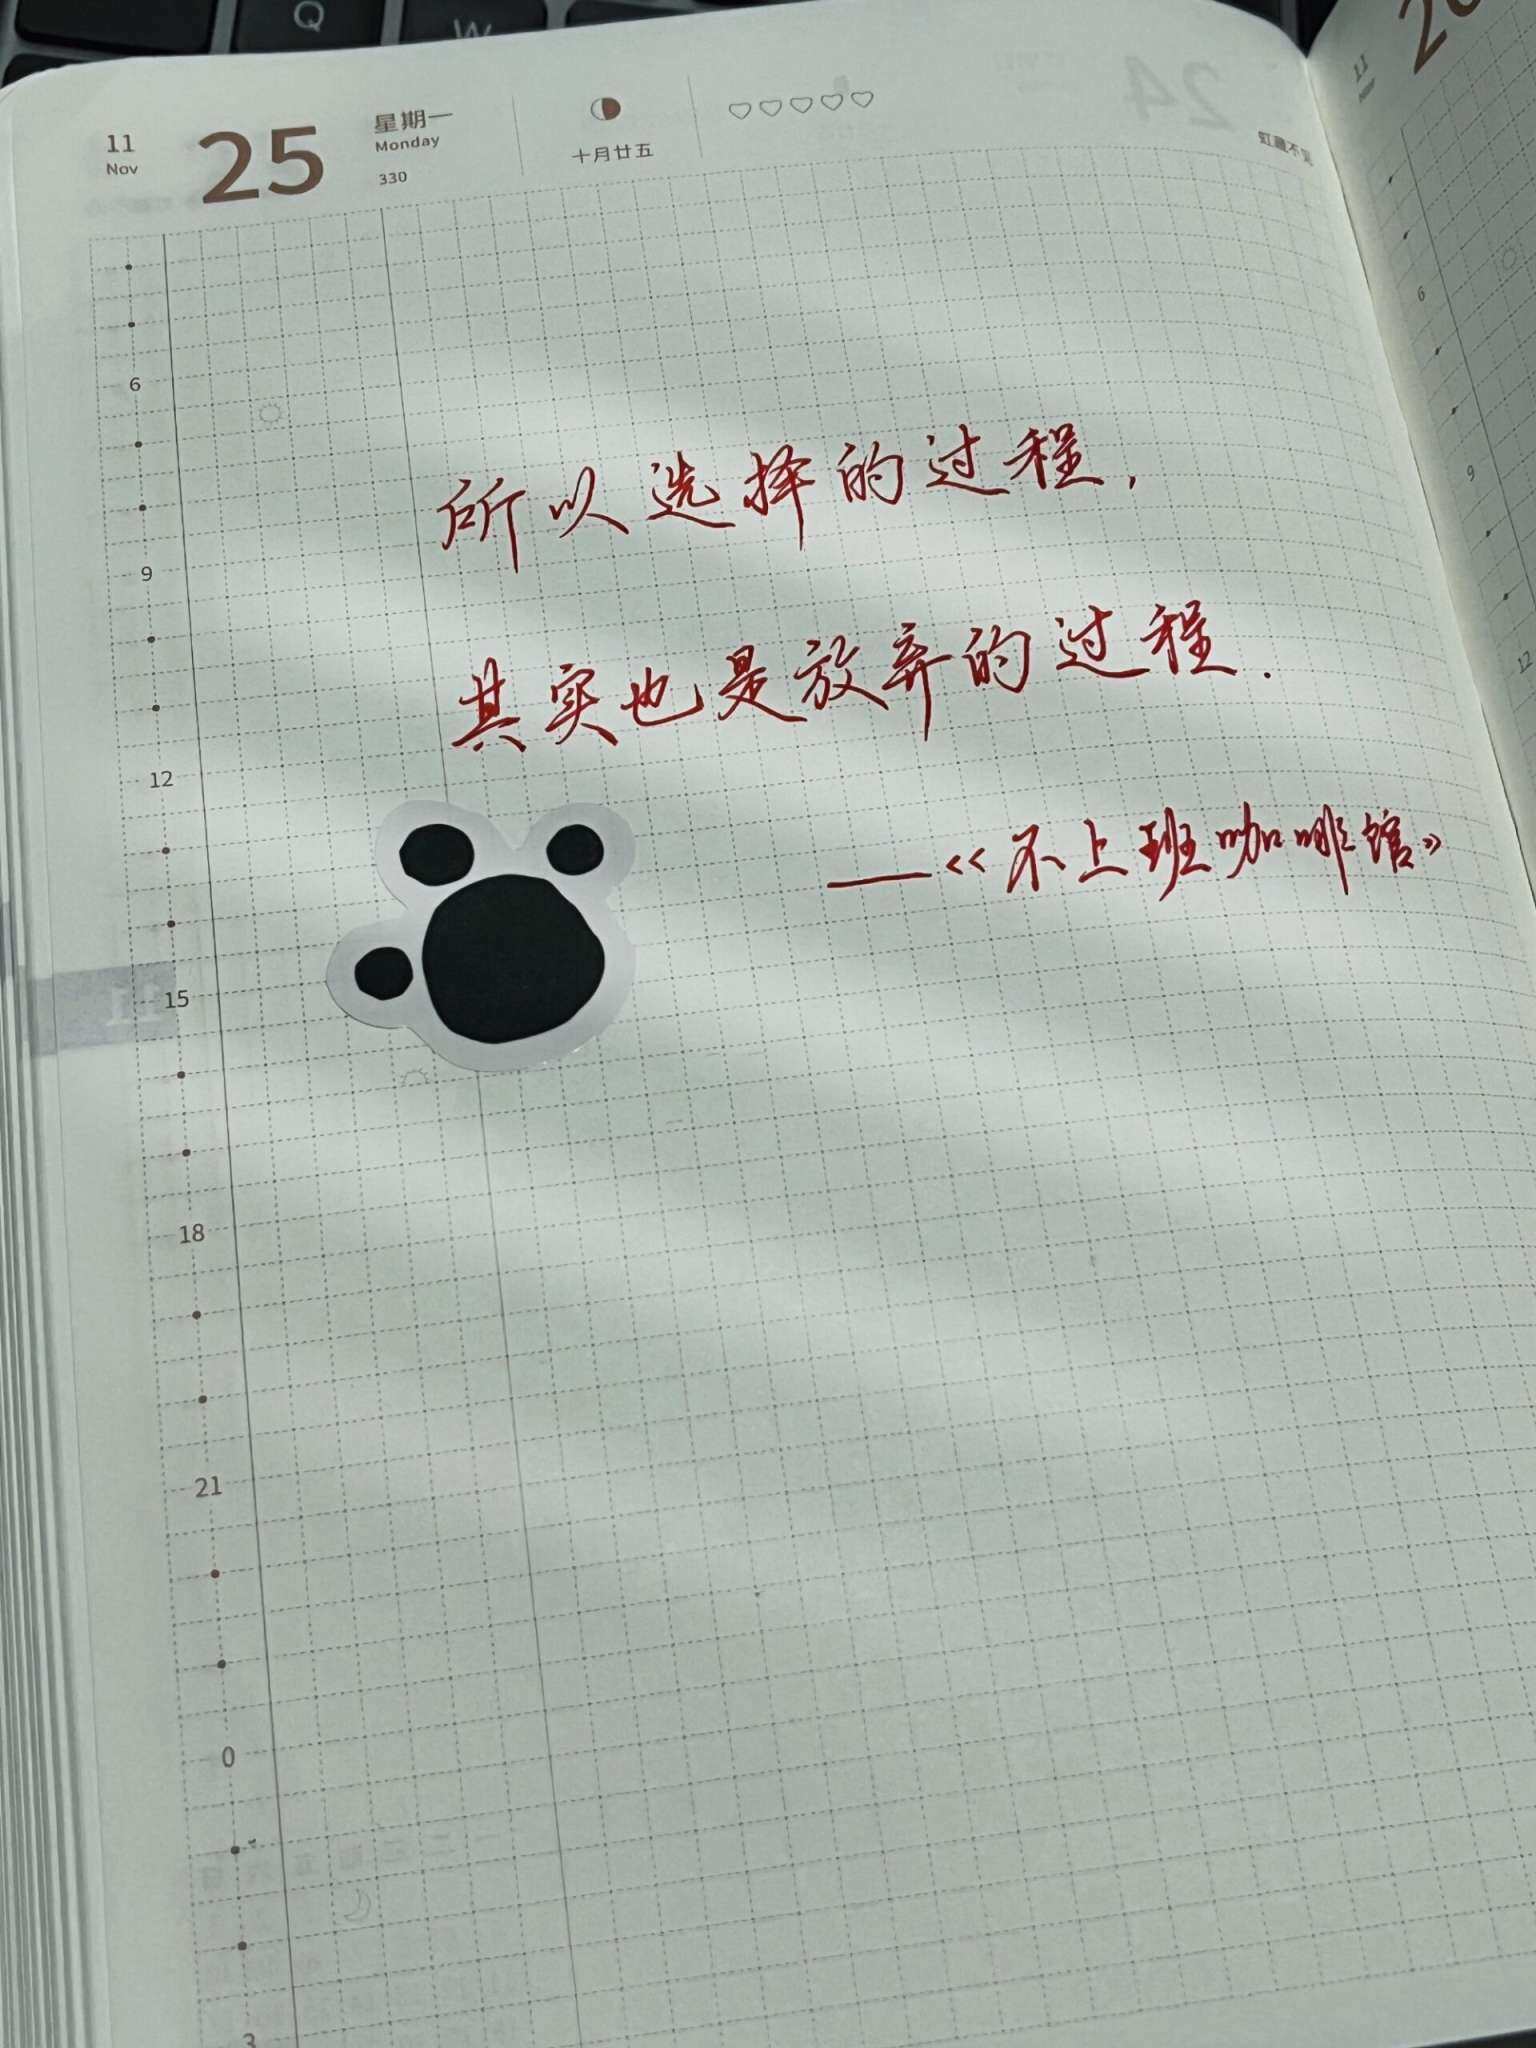 Q
W
11
Nov
25
星期一
Monday
330
十月廿五
虹藏不见
所以选择的过程,
其实也是放弃的过程.
——《不上班咖啡馆》
6
9
12
15
18
21
0
3
11
6
9
12